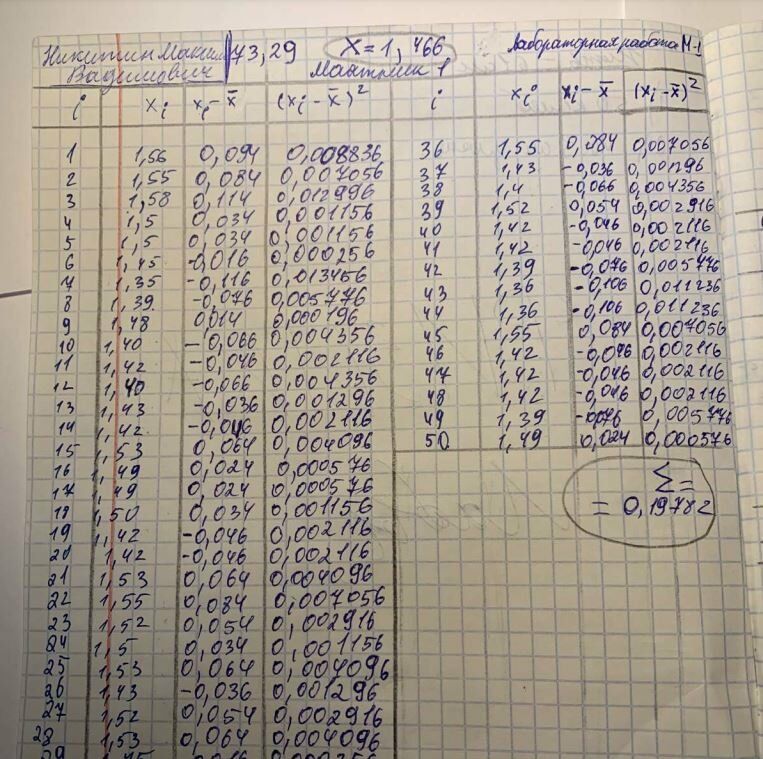 Никитин Максим 73,29 X=1,466 Лабораторная работа М-1
Вадимович Маятник 1
i xᵢ xᵢ-x̄ (xᵢ-x̄)² i xᵢ xᵢ-x̄ (xᵢ-x̄)²
1 1,56 0,094 0,008836 36 1,55 0,084 0,007056
2 1,55 0,084 0,007056 37 1,43 -0,036 0,001296
3 1,58 0,114 0,012996 38 1,4 -0,066 0,004356
4 1,5 0,034 0,001156 39 1,52 0,054 0,002916
5 1,5 0,034 0,001156 40 1,42 -0,046 0,002116
6 1,45 -0,016 0,000256 41 1,42 -0,046 0,002116
7 1,35 -0,116 0,013456 42 1,39 -0,076 0,005776
8 1,39 -0,076 0,005776 43 1,36 -0,106 0,011236
9 1,48 0,014 0,000196 44 1,36 -0,106 0,011236
10 1,40 -0,066 0,004356 45 1,55 0,084 0,007056
11 1,42 -0,046 0,002116 46 1,42 -0,046 0,002116
12 1,40 -0,066 0,004356 47 1,42 -0,046 0,002116
13 1,43 -0,036 0,001296 48 1,42 -0,046 0,002116
14 1,42 -0,046 0,002116 49 1,39 -0,076 0,005776
15 1,53 0,064 0,004096 50 1,49 0,024 0,000576
16 1,49 0,024 0,000576 Σ=
17 1,49 0,024 0,000576 = 0,19782
18 1,50 0,034 0,001156
19 1,42 -0,046 0,002116
20 1,42 -0,046 0,002116
21 1,53 0,064 0,004096
22 1,55 0,084 0,007056
23 1,52 0,054 0,002916
24 1,5 0,034 0,001156
25 1,53 0,064 0,004096
26 1,43 -0,036 0,001296
27 1,52 0,054 0,002916
28 1,53 0,064 0,004096
29